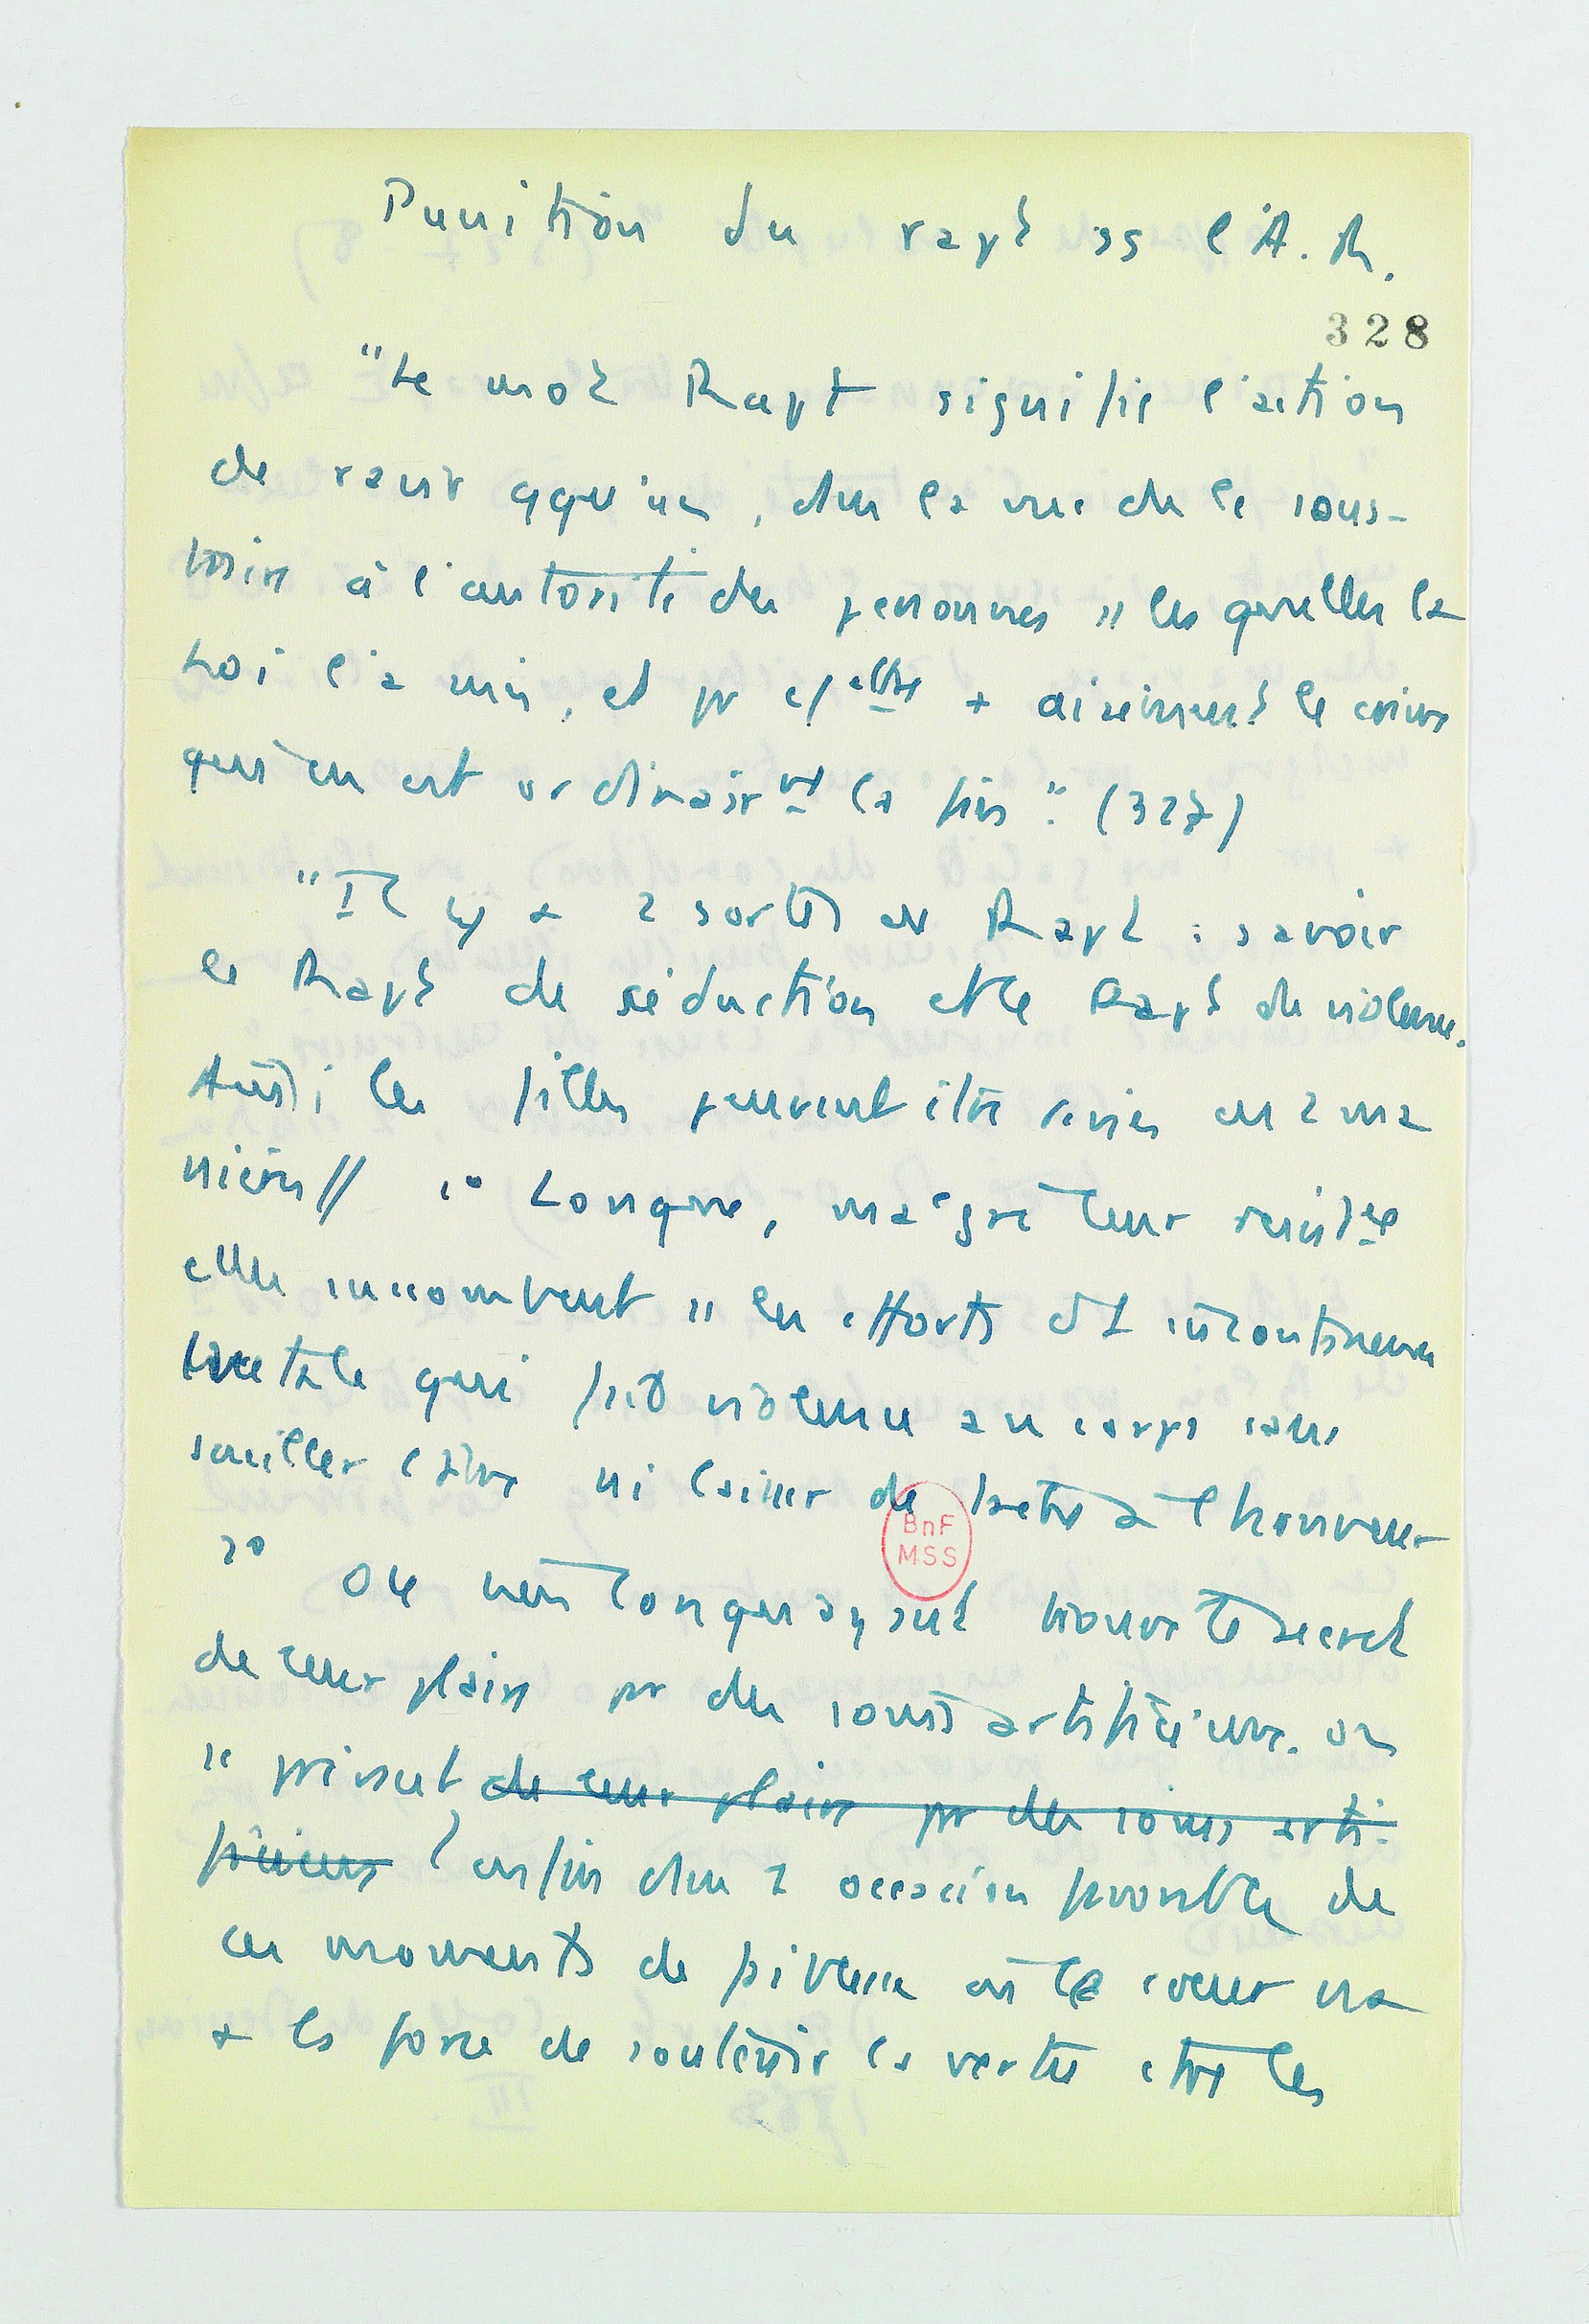 Punition du rapt ss l'A. R.
328
"Le mot Rapt signifie l'action
de ravir qqu'un, ds la vue de le sous-
traire à l'autorité des personnes ss lesquelles la
Loi l'a mis, et pr
+ aisément le crime
qui en est ordinairmt la fin". (327)
"Il y a 2 sortes de Rapt : savoir
le Rapt de séduction et le Rapt de violence.
Aussi les filles peuvent être ravies en 2 ma
nières// 1° Lorsque, malgré leur résistce
elles succombent ss les efforts d'1 incontinence
brutale qui fait violence au corps sans
souiller l'âme ni laisser de tache à l'honneur
2° Ou bien lorsqu'ayant trouvé le secret
de leur plaire pr des soins artificieux. on
se prévaut de leur plaire pr des soins arti-
ficieux enfin d'1 occasion favorable, de
ces moments de faiblesse où le coeur n'a
+ la force de soutenir la vertu ctre les
BnF
MSS